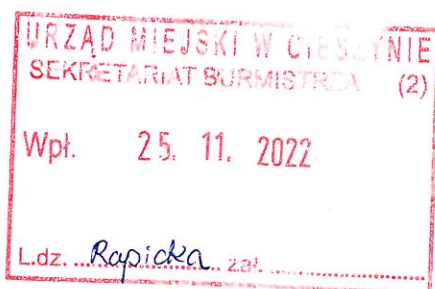 URZĄD MIEJSKI W CIESZYNIE
SEKRETARIAT BURMISTRZA (2)
Wpł. 25. 11. 2022
L.dz. ... Rapicka ... zał. ...